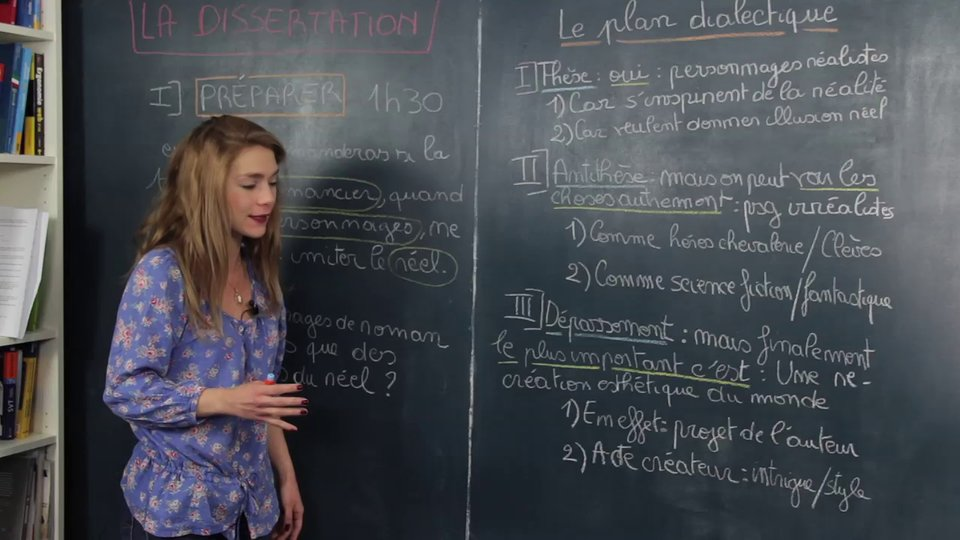 LA DISSERTATION
I] PRÉPARER 1h30
manderas si la
mancier, quand
personnages, ne
imiter le réel.
nages de roman
s que des
du réel ?
Le plan dialectique
I] Thèse : oui : personnages réalistes
1) Car s'inspirent de la réalité
2) Car veulent donner illusion réel
II] Antithèse : mais on peut voir les
choses autrement : psg irréalistes
1) Comme héros chevalerie / Clèves
2) Comme science fiction / fantastique
III] Dépassement : mais finalement
le plus important c'est : Une re-
création esthétique du monde
1) En effet = projet de l'auteur
2) Acte créateur : intrigue / style
Ergonomie web
LAS